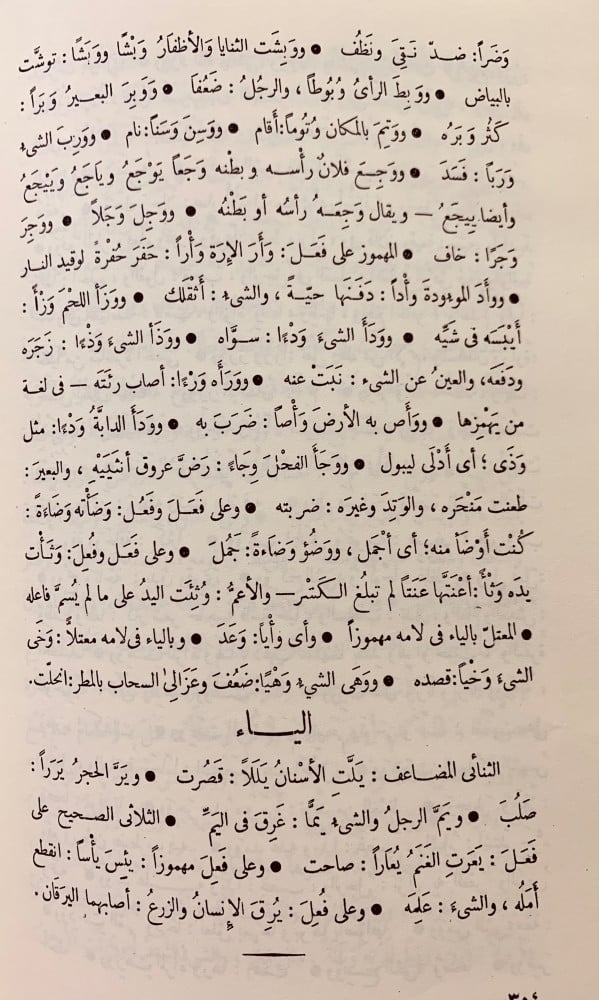 وَضَراً: ضـدّ نَـقِـىَ ونَظُف ● ووَبِشَت الثنايا وَالأظفارُ وَبْشًا ووَبَشًا : توشَّت
بالبياض ● ووبِطَ الرأىُ وُبُوطاً ، والرجلُ : ضَعُفا ● ووَبِرَ البعـيرُ وَبَراً :
كَثُر وَبَرُه ● ووَتِمَ بالمكان وُتُوماً: أَقام ● ووَسِنَ وَسَناً: نام ● ووَرِبَ الشىء
وَرَباً : فَسَدَ ● ووَجِـعَ فلانٌ رأْسـه وبطنه وَجَعاً يَوْجَعُ وياجَعُ ويَيْجَعُ
وأيضا يِيجَعُ — ويقال وَجِعَـهُ رأسُه أو بَطْنُه ● ووَجِلَ وَجَلاً ● ووَجِرَ
وَجَرًا : خاف ● المهموز على فَعَـلَ: وَأَرَ الإِرَة وَأْراً : حَفَر حُفْرةً لوقيد النـار
● ووأَدَ الموءودةَ وأْداً : دَفَـنَها حيّـةً ، والشىءُ : أَثْقَلك ● ووَزَأَ اللحْمَ وَزْأً :
أَيْبَسَه فى شَيِّه ● ووَدَأَ الشىءَ وَدْءًا : سـوَّاه ● ووَذَأ الشىءَ وَذْءًا : زَجَرَه
ودفَعَه، والعينُ عن الشىء : نَبَتْ عنه ● ووَرَأَه وَرْءًا: أصاب رِئَتَه — فى لغـة
من يَهْمِزها ● ووَأَص به الأرضَ وَأْصاً : ضَرَبَ به ● ووَدَأَ الدابَّةُ وَدْءًا: مثل
وَذَى ؛ أى أَدْلَى ليبول ● ووجَأَ الفحْلَ وِجَاءً : رَضَّ عروق أنثيَيْهِ ، والبعيرَ:
طعنت مَنْحَره ، والوتِدَ وغيرَه : ضربته ● وعلى فَعَـلَ وفَعُل: وَضَأْته وَضَاءَةً :
كُنْت أَوْضَأ منه؛ أى أجْمَل ، ووَضُؤ وَضَاءةً: جَمُلَ ● وعلى فَعَل وفُعِلَ: وَثَـأْت
يدَه وَثْأً : أَعْنَتَّها عَنَتاً لم تبلُغ الـكَسْر — والأعمُّ : وُثِئَت اليدُ على ما لم يُسمَّ فاعله
● المعتلّ بالياء فى لامه مهموزاً ● وأى وأْياً: وَعَدَ ● وبالياء فى لامه معتلاًّ: وَخَى
الشىءَ وَخْياً: قصده ● ووَهَى الشىءُ وَهْيًا: ضَعُفَ وعَزَالِىُ السحاب بالمطر: انحلّت.
اليـــاء
الثنائى المضـاعف : يَلَّتِ الأسْنانُ يَلَلاً : قَصُرت ● ويَرَّ الحجرُ يَرَراً :
صَلُبَ ● ويَمَّ الرجلُ والشىءُ يَمًّا : غَرِقَ فى اليَمِّ ● الثلاثى الصحيح على
فَعَـلَ : يَعَرَتِ الغَنَمُ يُعَاراً : صاحت ● وعلى فَعِلَ مهموزاً : يئِسَ يأْساً : انقطع
أَمَلُه ، والشىءَ : عَلِمَه ● وعلى فُعِلَ : يُرِقَ الإنسانُ والزرعُ : أصابهما اليرقان.
٣٠٤